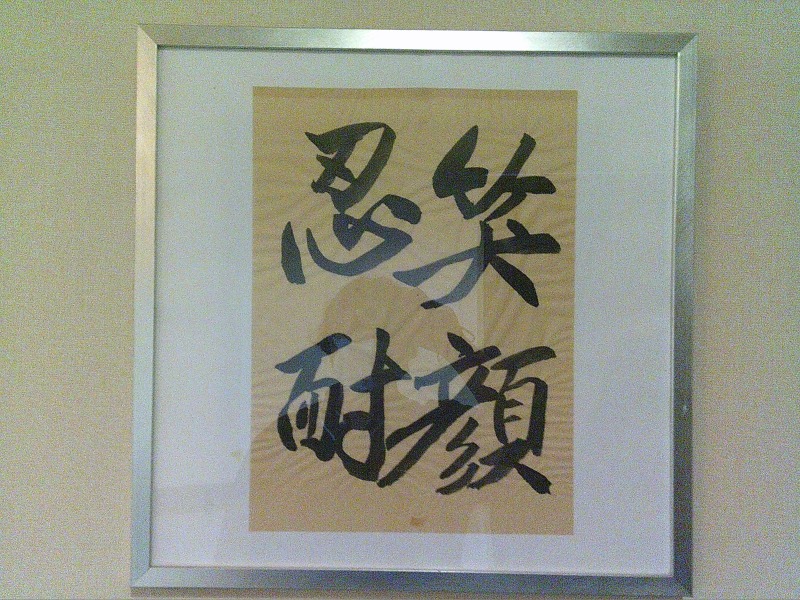 笑顔
忍耐